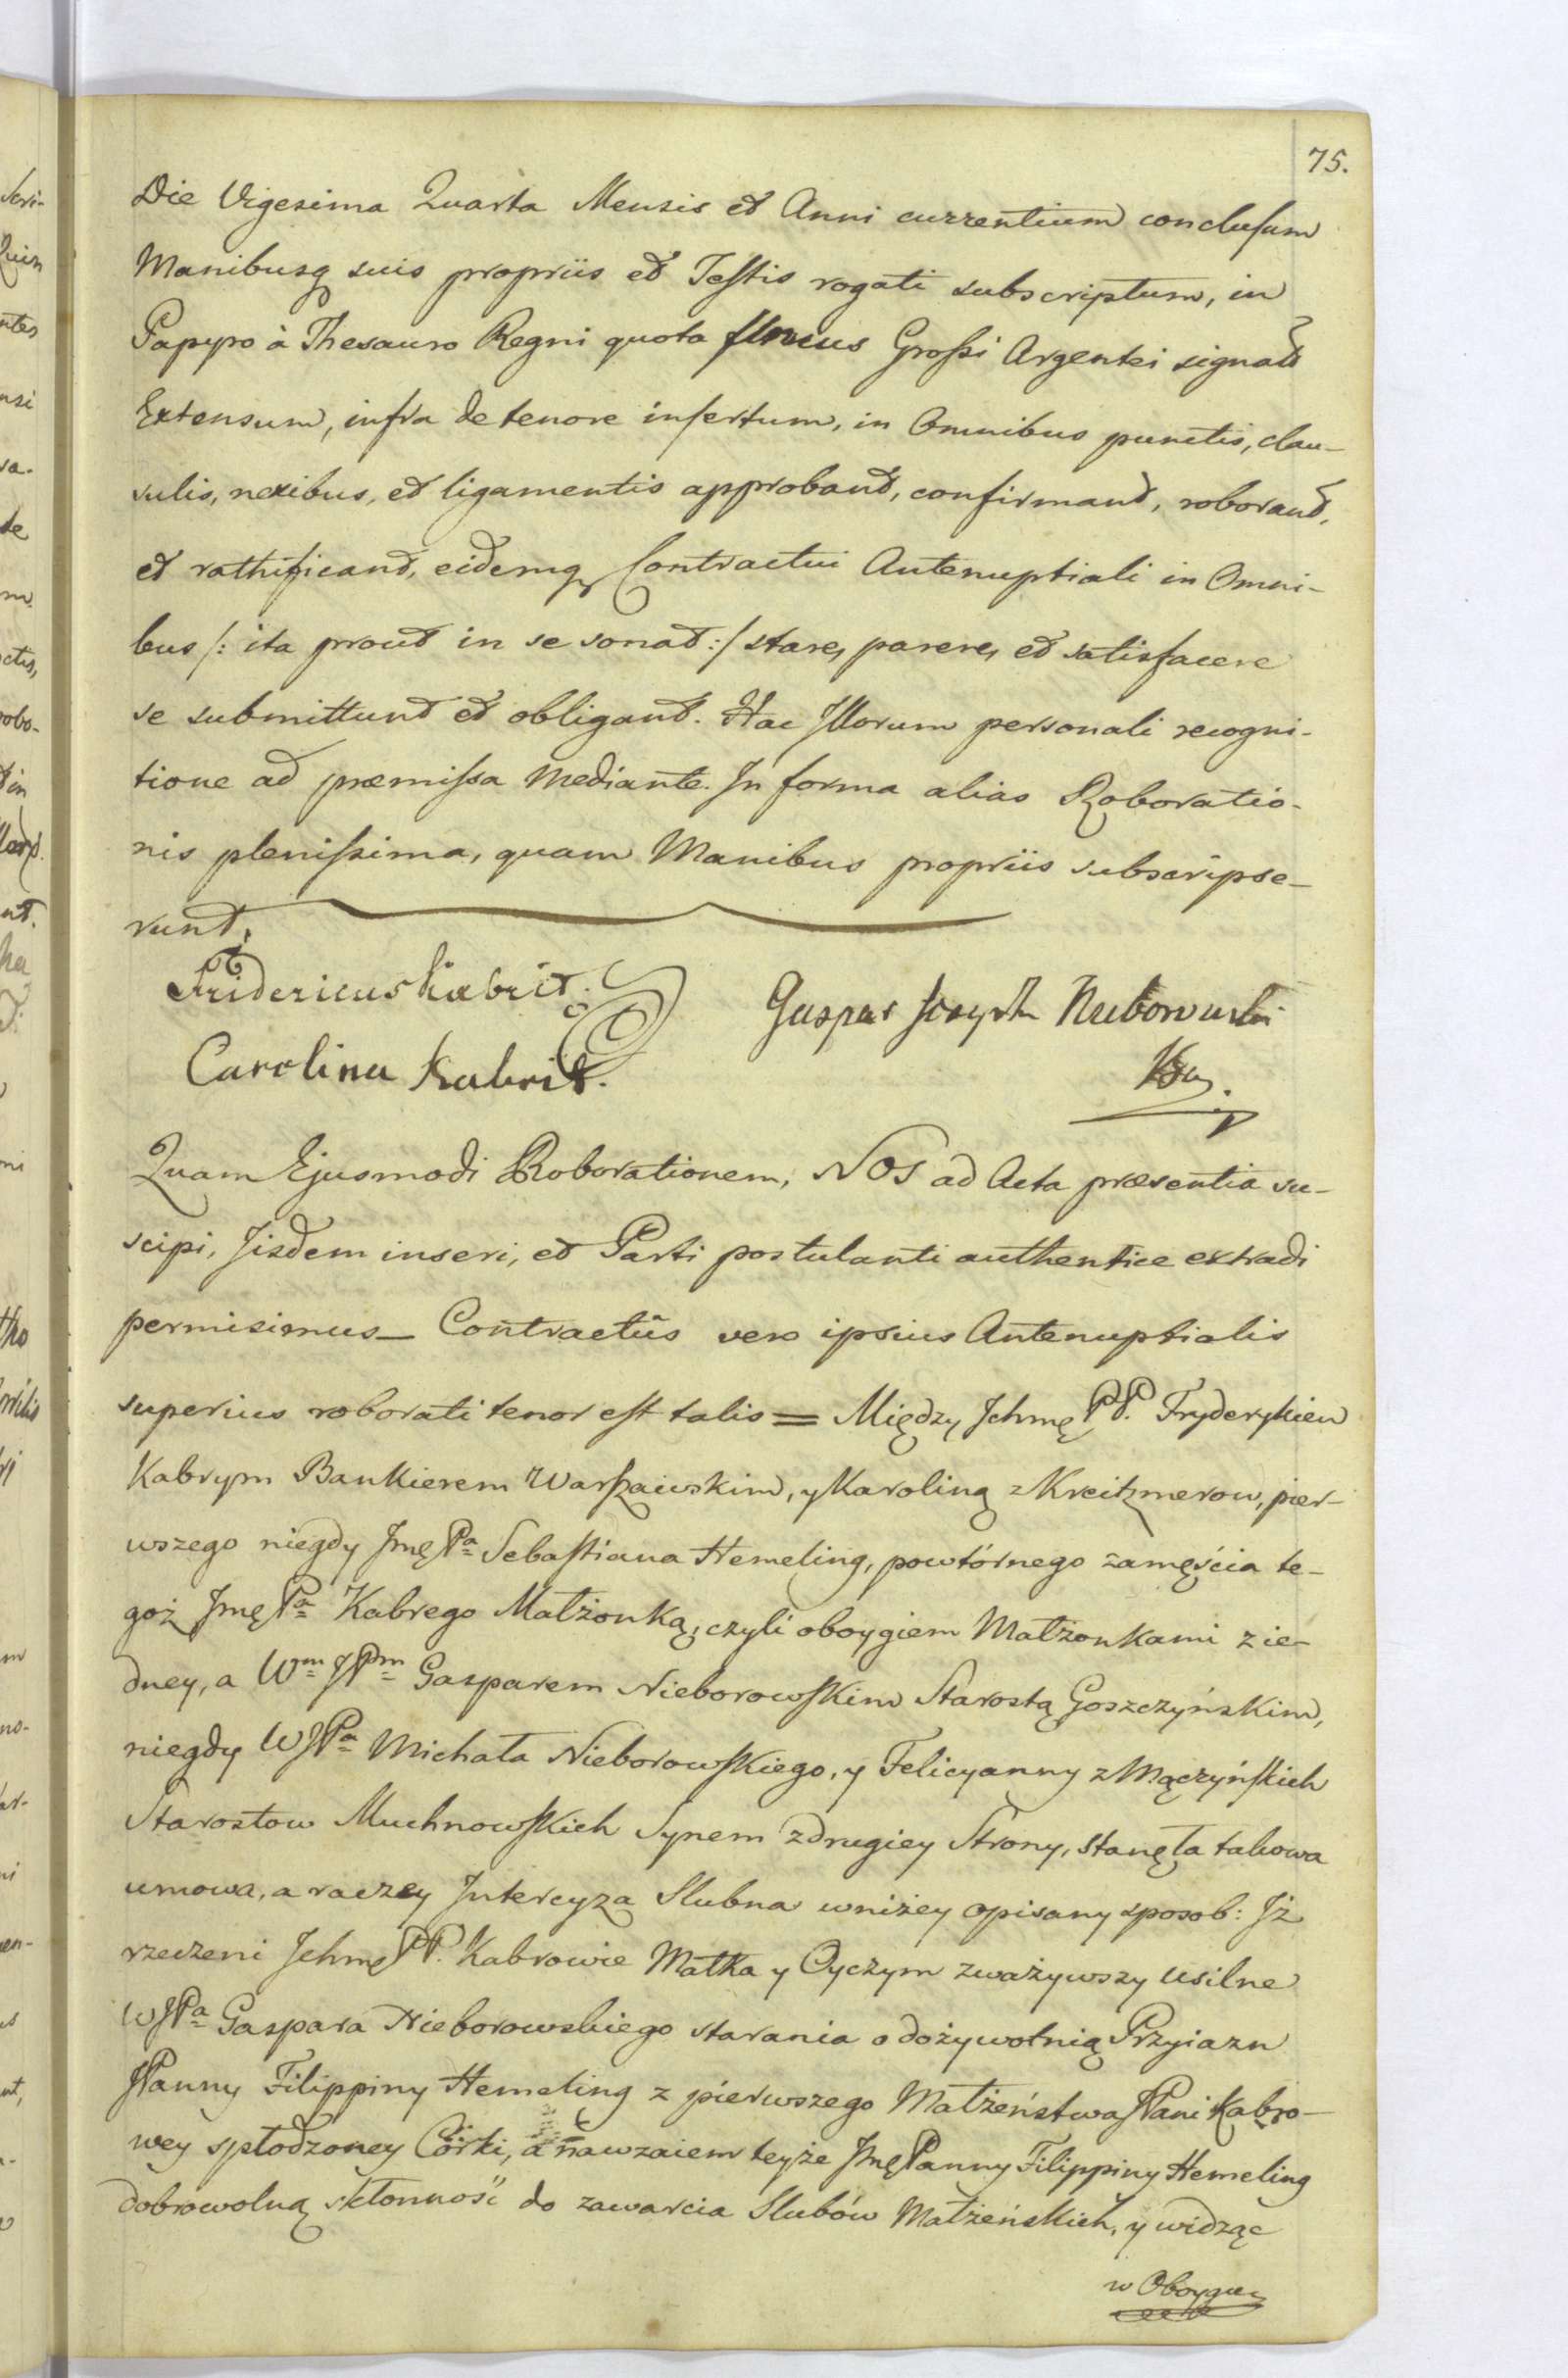 75.
Die Vigesima Quarta Mensis et Anni currentium conclusum
Manibusq suis propriis et Testis rogati subscriptum, in
Papyro à Thesauro Regni quota unius Grossi Argentei signat
Extensum, infra de tenore insertum, in Omnibus punctis, clau-
sulis, nexibus, et ligamentis approbant, confirmant, roborant,
et rathificant, eidemq Contractui Antenuptiali in Omni-
bus /: ita prout in se sonat :/ stare, parere, et satisfacere
se submittunt et obligant. Hac Illorum personali recogni-
tione ad præmissa mediante. In forma alias Roboratio-
nis plenissima, quam Manibus propriis subscripse-
runt.
Fridericus Kabrit.
Gaspar Joseph Nieborowski
Carolina Kabrit.
Quam Ejusmodi Roborationem, NOS ad Acta præsentia su-
scipi, Iisdem inseri, et Parti postulanti authentice extradi
permisimus_ Contractûs vero ipsius Antenuptialis
superius roborati tenor est talis = Między Ichmę PP. Fryderykiem
Kabrym Bankierem Warszawskim, y Karoliną z Kreitzmerow, pier-
wszego niegdy Jmę Pa Sebastiana Hemeling, powtórnego zamęścia te-
goż Jmę Pa Kabrego Małżonką, czyli oboygiem Małżonkami z ie-
dney, a Wm JPm Gasparem Nieborowskim Starostą Goszczyńskim,
niegdy WJPa Michała Nieborowskiego, y Felicyanny z Mączyńskich
Starostow Muchnowskich Synem z drugiey Strony, stanęła takowa
umowa, a raczey Intercyza Slubna w niżey opisany sposob: Iż
rzeczeni Ichmę PP. Kabrowie Matka y Oyczym zważywszy usilne
WJPa Gaspara Nieborowskiego starania o dożywotnią Przyiazn
JPanny Filippiny Hemeling z pierwszego Małżeństwa JPani Kabro-
wey spłodzoney Córki, a nawzaiem teyże Jmę Panny Filippiny Hemeling
dobrowolną skłonność do zawarcia Slubów Małżeńskich, y widząc
w Oboygu